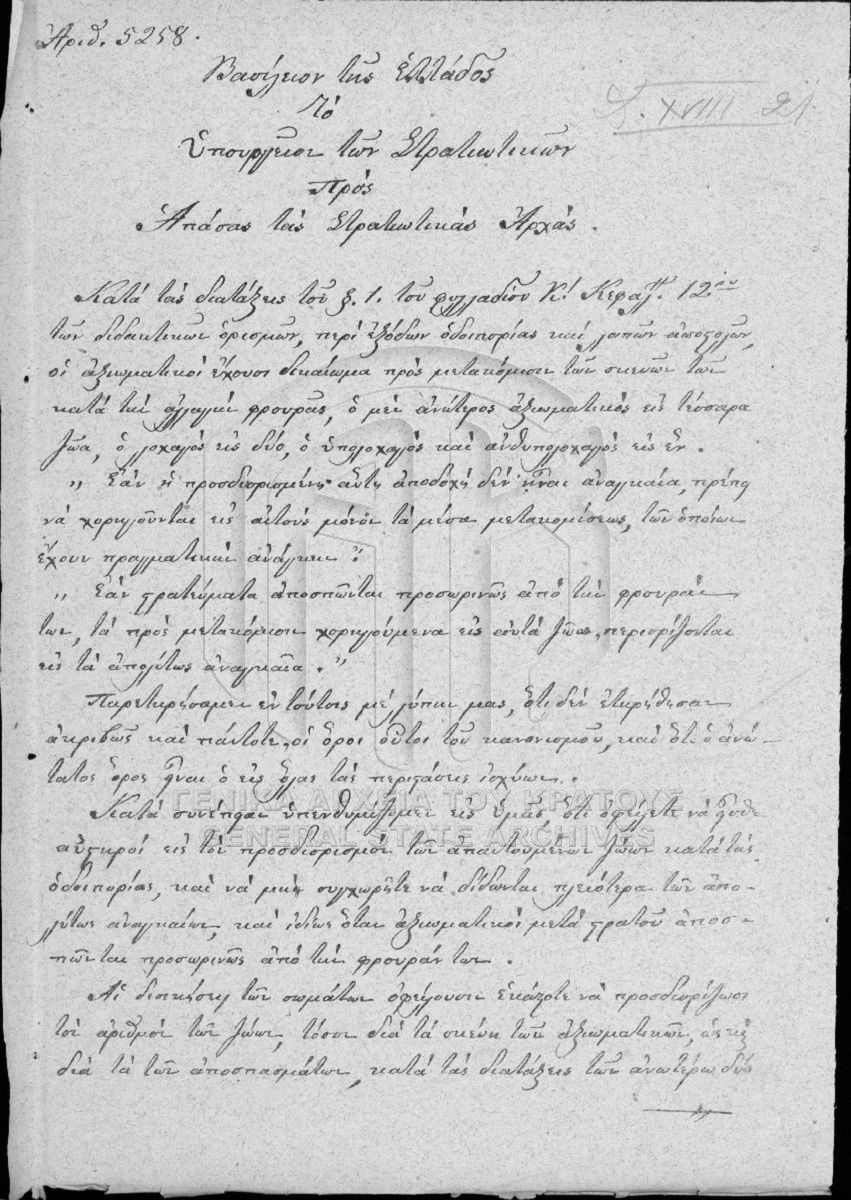 Ἀριθ. 5258.
Βασίλειον τῆς Ἑλλάδος
XVIII 21
Τὸ
Ὑπουργεῖον τῶν Στρατιωτικῶν
Πρὸς
Ἁπάσας τὰς Στρατιωτικὰς Ἀρχάς.
Κατὰ τὰς διατάξεις τοῦ §. 1. τοῦ φυλλαδίου Κ! Κεφαλ. 12ου
τῶν διδακτικῶν ὁρισμῶν, περὶ ἐξόδων ὁδοιπορίας καὶ λοιπῶν ἀποστολῶν,
οἱ ἀξιωματικοὶ ἔχουσι δικαίωμα πρὸς μετακόμισιν τῶν σκευῶν των
κατὰ τὴν ἀλλαγὴν φρουρᾶς, ὁ μὲν ἀνώτερος ἀξιωματικὸς εἰς τέσσαρα
ζῶα, ὁ λοχαγὸς εἰς δύο, ὁ ὑπολοχαγὸς καὶ ἀνθυπολοχαγὸς εἰς ἕν.
„ Ἐὰν ἡ προσδιορισμένη αὕτη ἀποδοχὴ δὲν ἦναι ἀναγκαία, πρέπει
νὰ χορηγοῦνται εἰς αὐτοὺς μόνον τὰ μέσα μετακομίσεως, τῶν ὁποίων
ἔχουν πραγματικὴν ἀνάγκην."
„ Ἐὰν στρατεύματα ἀποσπῶνται προσωρινῶς ἀπὸ τὴν φρουράν
των, τὰ πρὸς μετακόμισιν χορηγούμενα εἰς αὐτὰ ζῶα, περιορίζονται
εἰς τὰ ἀπολύτως ἀναγκαῖα."
Παρετηρήσαμεν ἐν τούτοις μὲ λύπην μας, ὅτι δὲν ἐτηρήθησαν
ἀκριβῶς καὶ πάντοτε οἱ ὅροι οὗτοι τοῦ κανονισμοῦ, καὶ ὅτι ὁ ἀνώ-
τατος ὅρος ἦναι ὁ εἰς ὅλας τὰς περιστάσεις ἰσχύων.
Κατὰ συνέπειαν ὑπενθυμίζομεν εἰς ὑμᾶς, ὅτι ὀφείλετε νὰ ἦσθε
αὐστηροὶ εἰς τὸν προσδιορισμὸν τῶν ἀπαιτουμένων ζώων κατὰ τὰς
ὁδοιπορίας, καὶ νὰ μὴ συγχωρῆτε νὰ δίδωνται πλειότερα τῶν ἀπο-
λύτως ἀναγκαίων, καὶ ἰδίως ὅταν ἀξιωματικοὶ μετὰ στρατοῦ ἀποσ-
πῶνται προσωρινῶς ἀπὸ τὴν φρουράν των.
Αἱ διοικήσεις τῶν σωμάτων ὀφείλουσιν ἑκάστοτε νὰ προσδιορίζωσι
τὸν ἀριθμὸν τῶν ζώων, τόσον διὰ τὰ σκεύη τῶν ἀξιωματικῶν, ὡς καὶ
διὰ τὰ τῶν ἀποσπασμάτων, κατὰ τὰς διατάξεις τῶν ἀνωτέρω δύο
ΓΕΝΙΚΑ ΑΡΧΕΙΑ ΤΟΥ ΚΡΑΤΟΥΣ
GENERAL STATE ARCHIVES